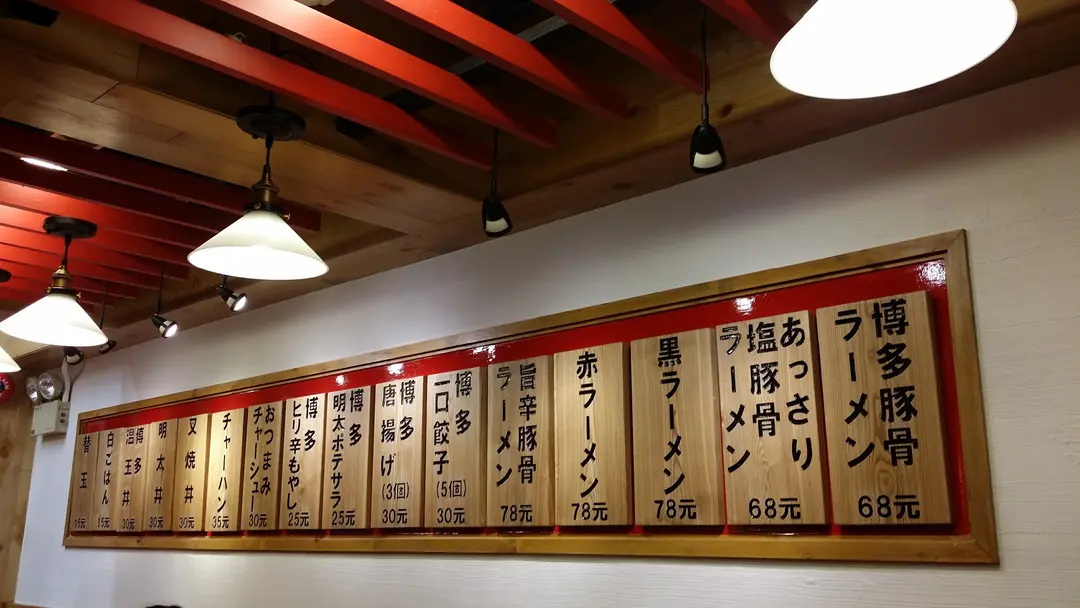 博多豚骨
ラーメン
68元
あっさり
塩豚骨
ラーメン
68元
黒ラーメン
78元
赤ラーメン
78元
旨辛豚骨
ラーメン
78元
博多
一口餃子
(5個)
30元
博多
唐揚げ
(3個)
30元
博多
明太ポテサラ
25元
博多
ヒリ辛もやし
25元
おつまみ
チャーシュー
30元
チャーハン
35元
叉焼丼
30元
明太丼
30元
博多
温玉丼
30元
白ごはん
15元
替玉
15元